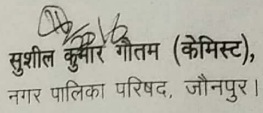 सुशील कुमार गौतम (केमिस्ट),
नगर पालिका परिषद, जौनपुर।